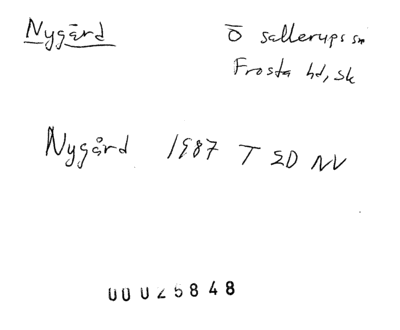 Nygård
Ö Sallerups sn
Frosta hd, Sk
Nygård 1987 T SD NV
00025848